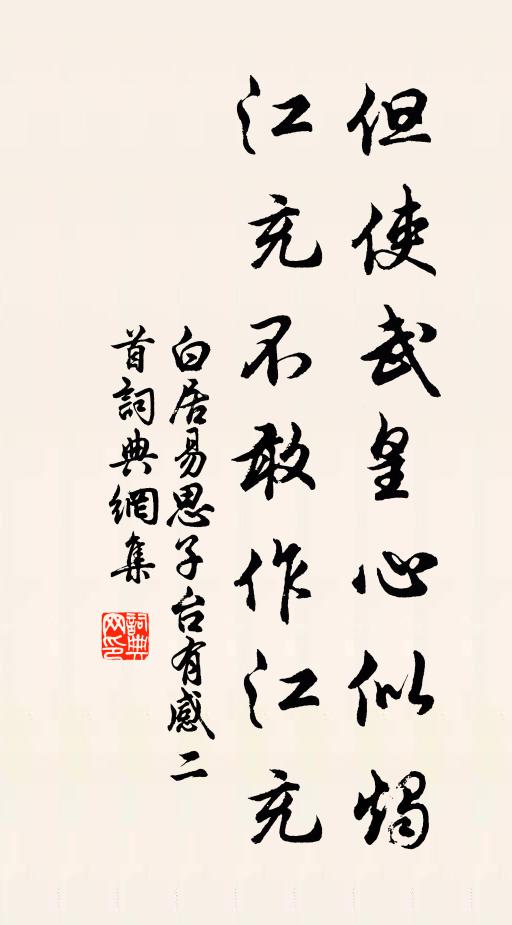 但使武皇心似燭
江充不敢作江充
白居易思子台有感二
首詞典網集
詞典
网印